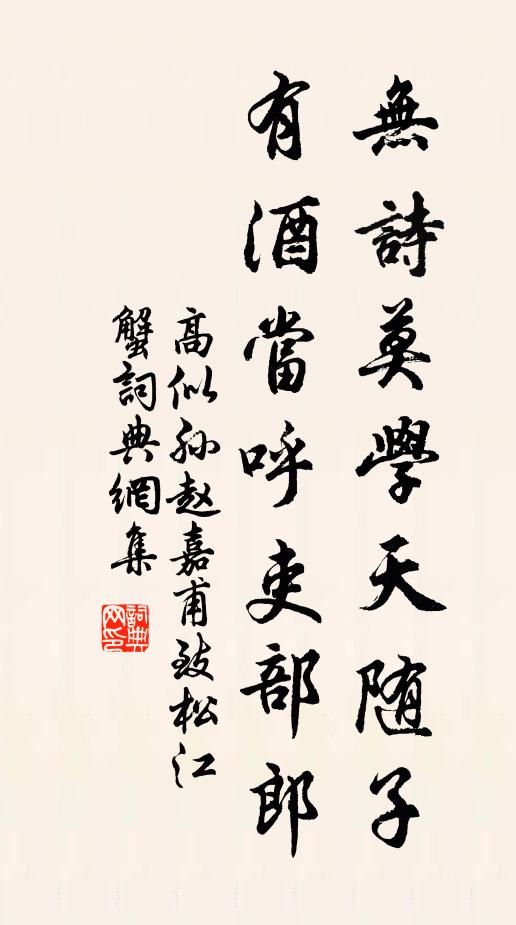 無詩莫學天随子
有酒當呼吏部郎
高似孙赵嘉甫致松江
蟹詞典網集
詞典网印